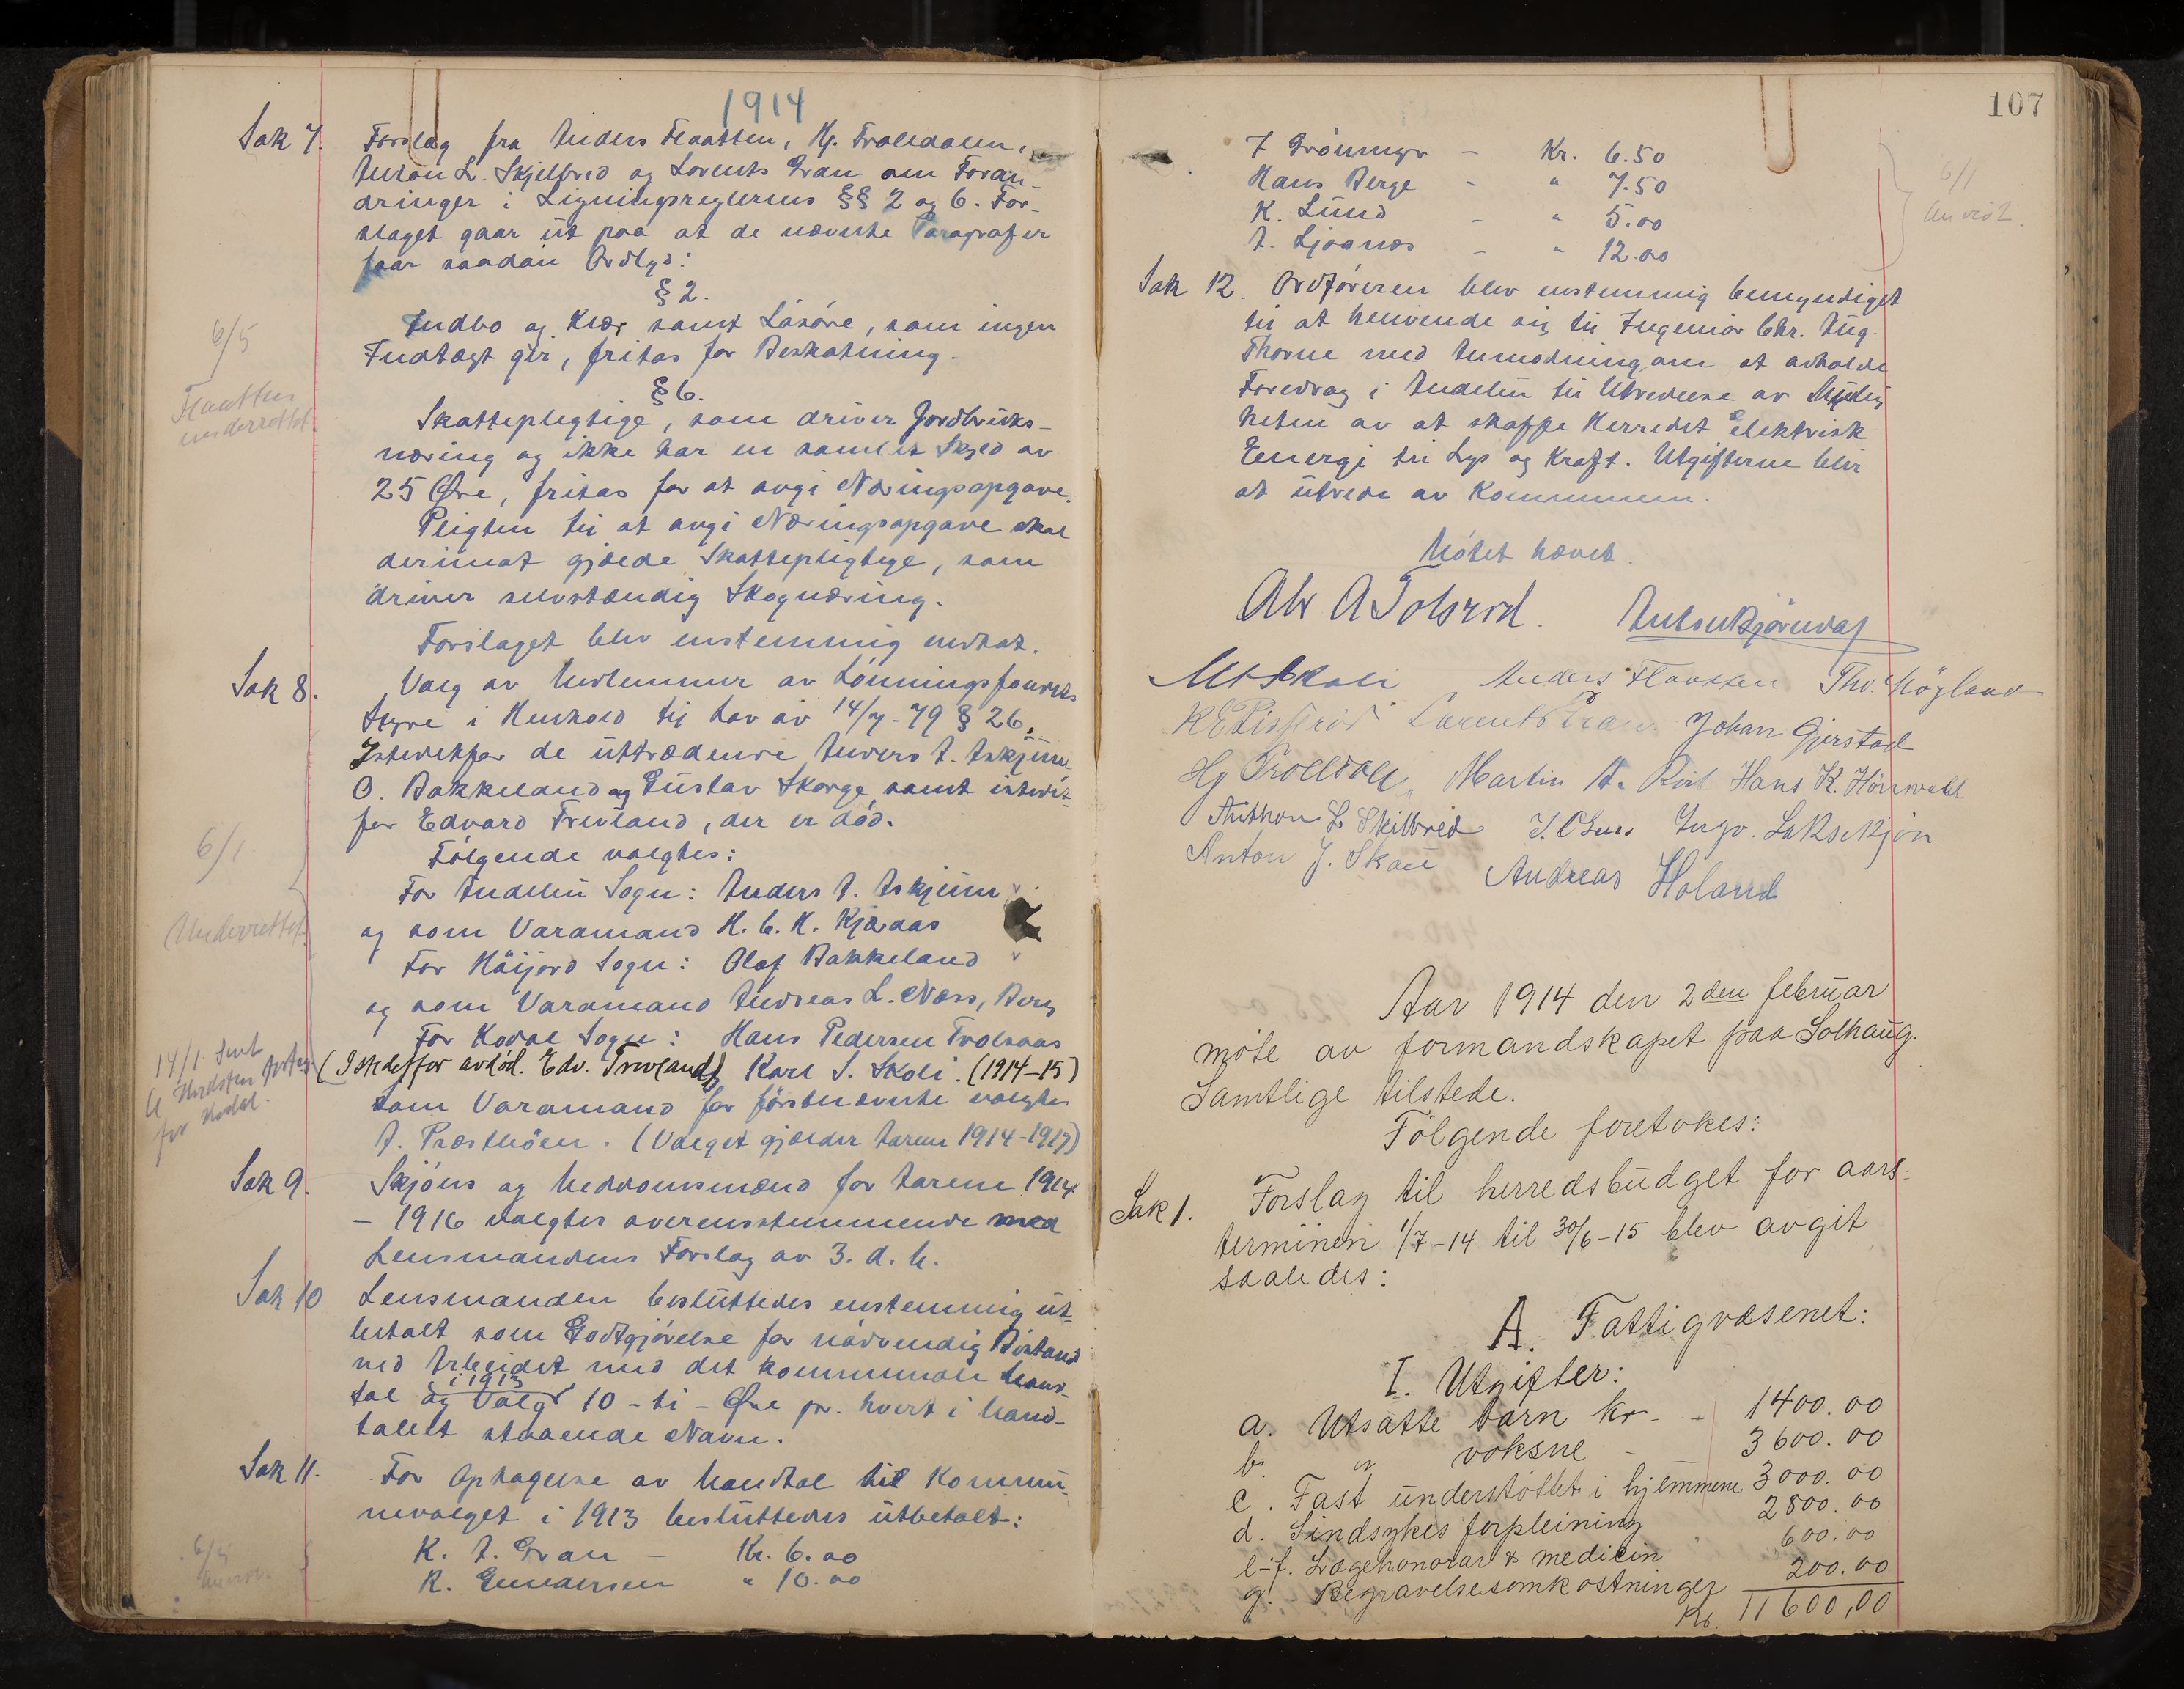 1914
Sak 7. Forslag fra Anders Flaatten, Hj. Trolldalen,
Anton L. Skjelbred og Lorents Gran om Foran-
dringer i Ligningsreglernes §§ 2 og 6. For-
slaget gaar ut paa at de nævnte Paragrafer
faar saadan Ordlyd:
§ 2.
Indbo og Klær samt Løsøre, som ingen
Indtægt gir, fritas for Beskatning.
6/5
Flaatten
underrettet.
§ 6.
Skattepligtige, som driver Jordbruks-
næring og ikke har en samlet Skyld av
25 Øre, fritas for at avgi Næringsopgave.
Pligten til at avgi Næringsopgave skal
derimot gjælde Skattepligtige, som
driver selvstændig Skognæring.
Forslaget blev enstemmig vedtat.
Sak 8. Valg av Medlemmer av Lønningsfondets
Styre i Henhold til Lov av 14/7-79 § 26,
Istedetfor de uttrædende Anders A. Askjem
O. Bakkeland og Gustav Skorge samt istedet-
for Edvard Trevland, der er død.
Følgende valgtes:
6/1
Underrettet.
For Andebu Sogn: Anders A. Askjem
og som Varamand H. C. H. Kjæraas
For Høijord Sogn: Olaf Bakkeland
og som Varamand Andreas L. Næss, Berg
For Kodal Sogn: Hans Pedersen Trolsaas
(Istedetfor avdød. Edv. Trevland) Karl S. Skoli. (1914-15)
14/1 Sent
for Kodal.
som Varamand for førstnævnte valgtes
A. Præsthøen. (Valget gjælder Aarene 1914-1917)
Sak 9. Skjøns og Meddomsmænd for Aarene 1914
- 1916 valgtes overensstemmende med
Lensmandens Forslag av 3. d. M.
Sak 10 Lensmanden besluttedes enstemmig ut-
betalt som Godtgjørelse for nødvendig Bistand
ved Arbeidet med det kommunale Mand-
i 1913
tal og Valg 10 - ti - Øre pr. hvert i Mand-
tallet staaende Navn.
Sak 11. For Optagelse av Mandtal til Kommu-
nevalget i 1913 besluttedes utbetalt:
K. A. Gran - Kr. 6.00
R. Gundersen " 10.00
6/5
107
J Grønmyr - Kr. 6.50
Hans Berge - " 7.50
K. Lund - " 5.00
A. Ljosnæs - " 12.00
6/1
Anvist.
Sak 12. Ordføreren blev enstemmig bemyndiget
til at henvende sig til Ingeniør Chr. Aug.
Thorne med Anmodning om at avholde
Foredrag i Andebu til Utredelse av Mulig
heten av at skaffe Herredet elektrisk
Energi til Lys og Kraft. Utgifterne blir
at utrede av Kommunen.
Møtet hævet.
Abr A Tolsrød. Anton Bjørndal
M Skoli Anders Flaatten Thv. Møyland
Lorents Gran. Johan Gjerstad
Hj Trolldal, Martin A. Hans K. Hørsdahl
Anthon L. Skilbred Ingv. Lakskjøn
Anton J. Skau Andreas Holand
Aar 1914 den 2den februar
møte av formandskapet paa Solhaug.
Samtlige tilstede.
Følgende foretokes:
Sak 1. Forslag til herredsbudget for aars-
terminen 1/7-14 til 30/6-15 blev avgit
saaledes:
A. Fattigvæsenet:
I. Utgifter:
a. Utsatte barn kr. - 1400.00
b. " voksne - 3600.00
c. Fast understøttet i hjemmene 3000.00
d. Sindsykes forpleining 2800.00
e-f. Lægehonorar & medicin 600.00
g. Begravelsesomkostninger 200.00
Kr. 11600,00